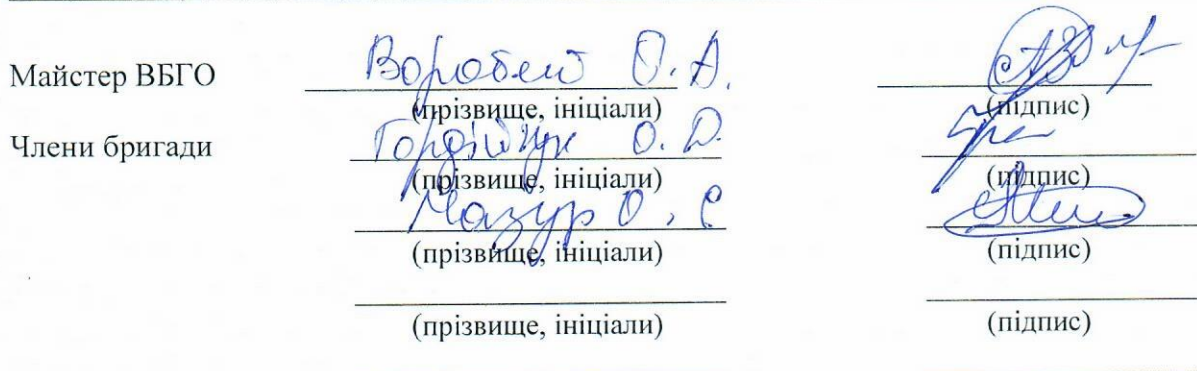 Майстер ВБГО Воробей О. А.
(прізвище, ініціали) (підпис)
Члени бригади Гордійчук О. Д.
(прізвище, ініціали) (підпис)
Мазур О. С
(прізвище, ініціали) (підпис)
(прізвище, ініціали) (підпис)